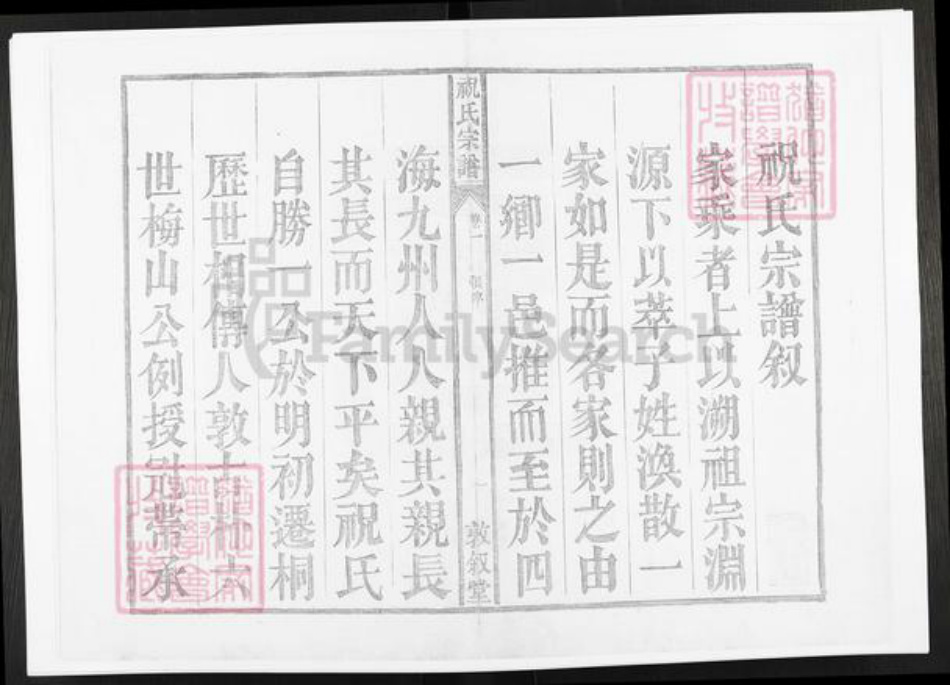 祝氏宗譜叙
家乘者上以溯祖宗淵
源下以萃子姓渙散一
家如是而各家則之由
一鄉一邑推而至於四
祝氏宗譜
卷一
敦叙堂
海九州人人親其親長
其長而天下平矣祝氏
自勝一公於明初遷桐
歷世相傳人敦士六
世梅山公例授冠帶承
FamilySearch